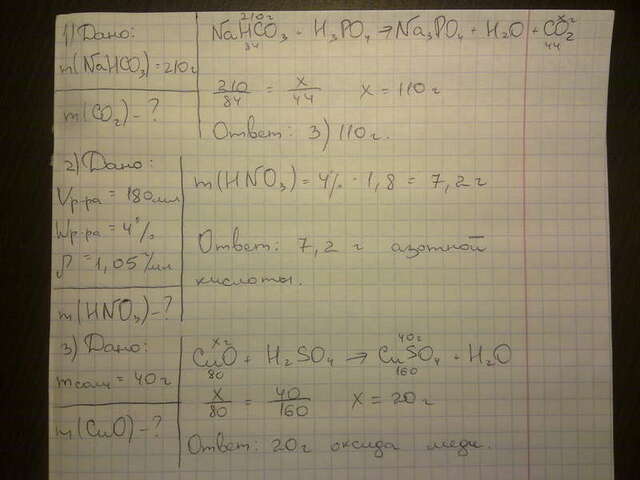 1) Дано:
m(NaHCO₃) = 210 г
m(CO₂) - ?
210 г x г
NaHCO₃ + H₃PO₄ → Na₃PO₄ + H₂O + CO₂
84 44
210/84 = x/44 x = 110 г
Ответ: 3) 110 г.
2) Дано:
Vр-ра = 180 мл
Wр-ра = 4%
ρ = 1,05 г/мл
m(HNO₃) - ?
m(HNO₃) = 4% · 1,8 = 7,2 г
Ответ: 7,2 г азотной
кислоты.
3) Дано:
mсоли = 40 г
m(CuO) - ?
x г 40 г
CuO + H₂SO₄ → CuSO₄ + H₂O
80 160
x/80 = 40/160 x = 20 г
Ответ: 20 г оксида меди.